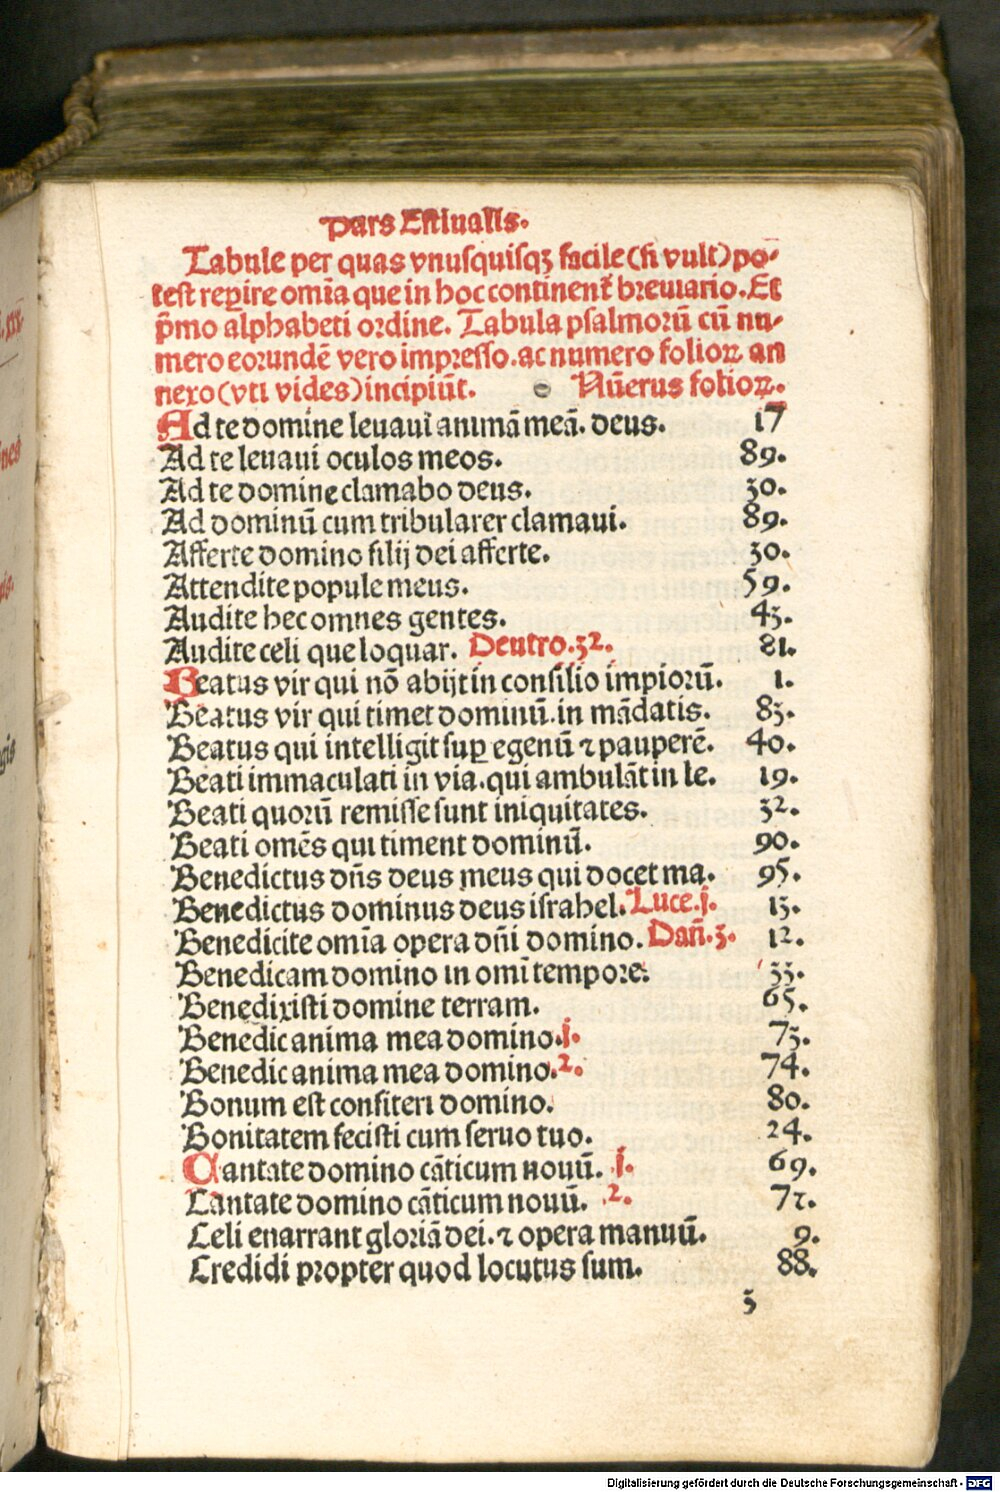 Pars Estiualis.
Tabule per quas vnusquisqꝫ facile (si vult) po-
test reꝑire omīa que in hoc continent᷑ breuiario. Et
p̄mo alphabeti ordine. Tabula psalmorū cū nu-
mero eorundē vero impresso. ac numero folioꝝ an
nexo (vti vides) incipiūt. Nūerus folioꝝ.
Ad te domine leuaui animā meā. deus. 17
Ad te leuaui oculos meos. 89.
Ad te domine clamabo deus. 30.
Ad dominū cum tribularer clamaui. 89.
Afferte domino filij dei afferte. 30.
Attendite popule meus. 59.
Audite hec omnes gentes. 43.
Audite celi que loquar. Deutro. 32. 81.
Beatus vir qui nō abijt in consilio impiorū. 1.
Beatus vir qui timet dominū. in mādatis. 83.
Beatus qui intelligit suꝑ egenū ⁊ pauperē. 40.
Beati immaculati in via. qui ambulāt in le. 19.
Beati quorū remisse sunt iniquitates. 32.
Beati omēs qui timent dominū. 90.
Benedictus dn̄s deus meus qui docet ma. 95.
Benedictus dominus deus israhel. Luce. j. 13.
Benedicite omīa opera dn̄i domino. Dan̄. 3. 12.
Benedicam domino in omī tempore. 33.
Benedixisti domine terram. 65.
Benedic anima mea domino. j. 73.
Benedic anima mea domino. 2. 74.
Bonum est confiteri domino. 80.
Bonitatem fecisti cum seruo tuo. 24.
Cantate domino cāticum nouū. j. 69.
Cantate domino cāticum nouū. 2. 72.
Celi enarrant gloriā dei. ⁊ opera manuū. 9.
Credidi propter quod locutus sum. 88.
3
Digitalisierung gefördert durch die Deutsche Forschungsgemeinschaft - DFG